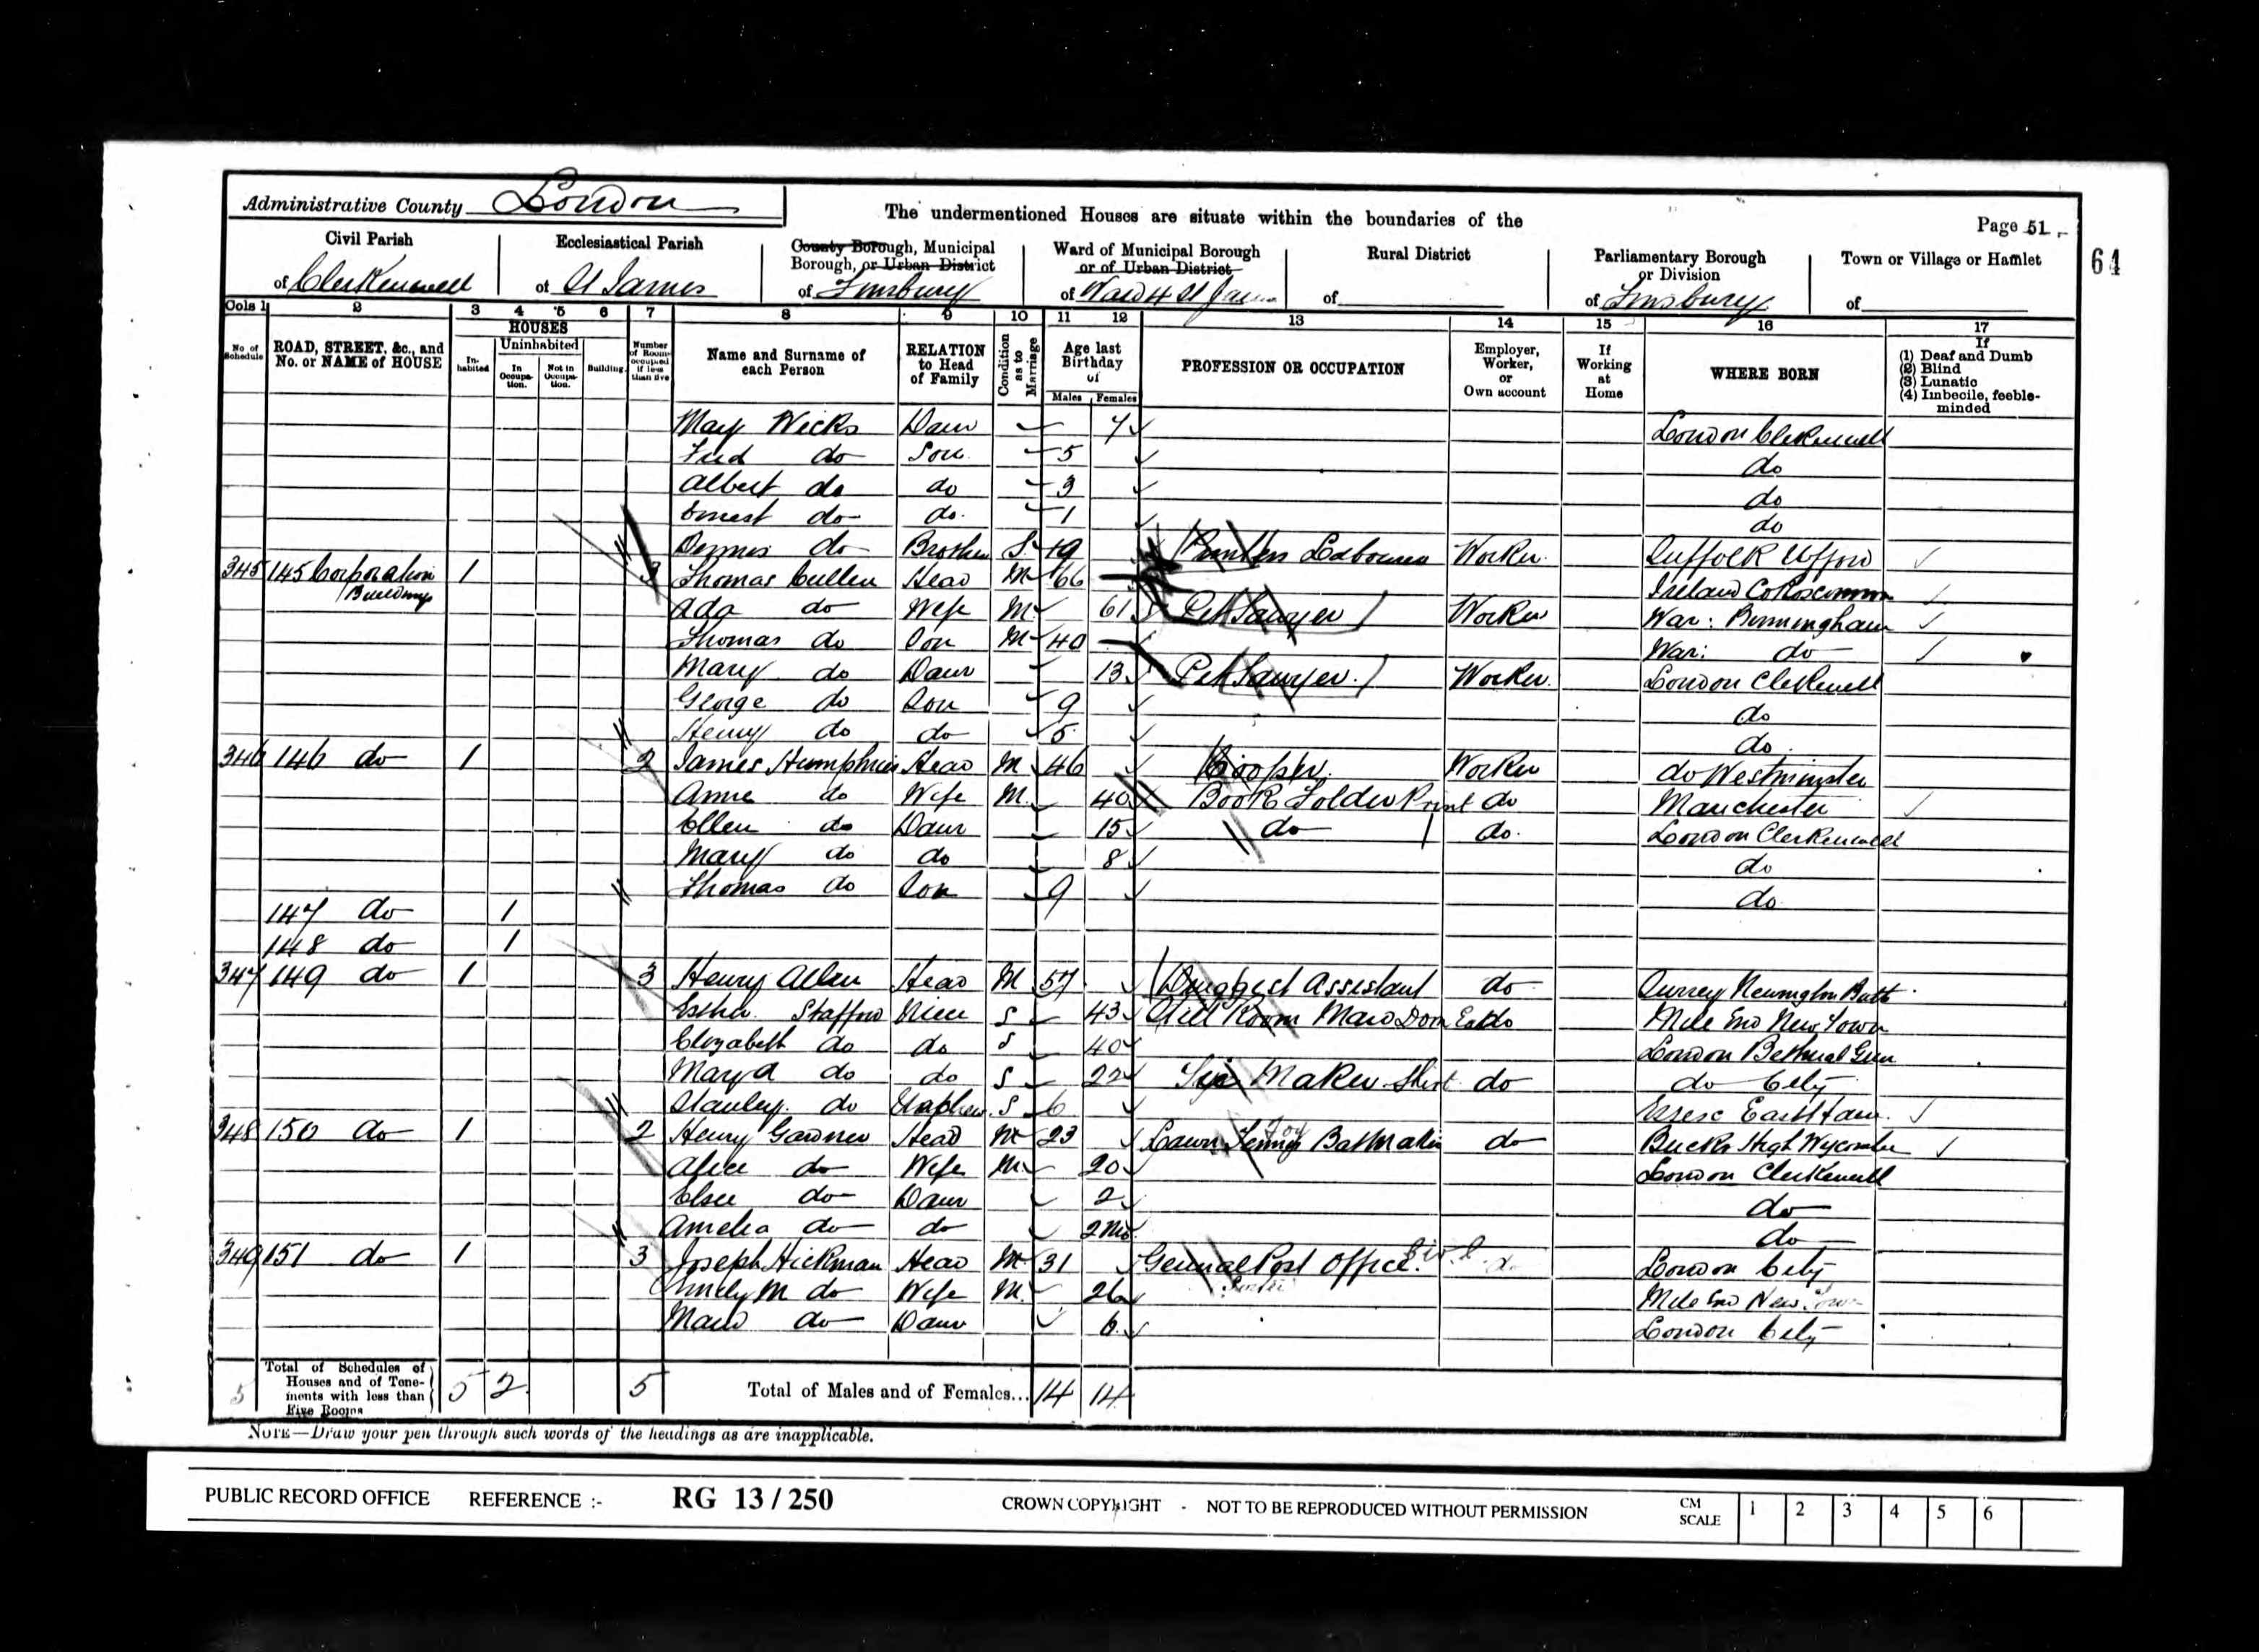 Administrative County London
The undermentioned Houses are situate within the boundaries of the
Page 51
64
Civil Parish of Clerkenwell
Ecclesiastical Parish of St James
County Borough, Municipal Borough, or Urban District of Finsbury
Ward of Municipal Borough or of Urban District of Ward 4 St James
Rural District of
Parliamentary Borough or Division of Finsbury
Town or Village or Hamlet of
Cols 1 2 3 4 5 6 7 8 9 10 11 12 13 14 15 16 17
No of Schedule
ROAD, STREET, &c., and No. or NAME of HOUSE
HOUSES
Inhabited
Uninhabited
In Occupation.
Not in Occupation.
Building.
Number of Rooms occupied if less than five
Name and Surname of each Person
RELATION to Head of Family
Condition as to Marriage
Age last Birthday of
Males Females
PROFESSION OR OCCUPATION
Employer, Worker, or Own account
If Working at Home
WHERE BORN
If
(1) Deaf and Dumb
(2) Blind
(3) Lunatic
(4) Imbecile, feeble-minded
May Wicks Daur 7 London Clerkenwell
Fred do Son 5 do
Albert do do 3 do
Ernest do do 1 do
Dennis do Brother S 19 Labourer Worker Suffolk Ufford
345 145 Corporation Buildings 1 3 Thomas Cullen Head M 66 Ireland Co Roscommon
Ada do Wife M 61 Sawyer Worker War: Birmingham
Thomas do Son M 40 War: do
Mary do Daur 13 Sawyer Worker London Clerkenwell
George do Son 9 do
Henry do do 5 do
346 146 do 1 2 James Humphries Head M 46 Cooper Worker do Westminster
Anne do Wife M 40 Book Folder Print do Manchester
Ellen do Daur 15 do do London Clerkenwell
Mary do do 8 do
Thomas do Son 9 do
147 do 1
148 do 1
347 149 do 1 3 Henry Allen Head M 57 Druggist Assistant do Surrey Newington Butts
Esther Stafford Niece S 43 Still Room Maid Dom do Mile End New Town
Elizabeth do do S 40 London Bethnal Green
Mary A do do S 22 Tie Maker do do City
Stanley do Nephew S 6 Essex East Ham
348 150 do 1 2 Henry Gardner Head M 23 Lawn Tennis Bat Maker do Bucks High Wycombe
Alice do Wife M 20 London Clerkenwell
Elsie do Daur 2 do
Amelia do do 2 Mo do
349 151 do 1 3 Joseph Hickman Head M 31 General Post Office London City
Emily M do Wife M 26 Porter Mile End New Town
Maud do Daur 6 London City
5 Total of Schedules of Houses and of Tenements with less than Five Rooms 5 2 5 Total of Males and of Females... 14 14
NOTE—Draw your pen through such words of the headings as are inapplicable.
PUBLIC RECORD OFFICE REFERENCE :- RG 13 / 250 CROWN COPYRIGHT - NOT TO BE REPRODUCED WITHOUT PERMISSION CM SCALE 1 2 3 4 5 6